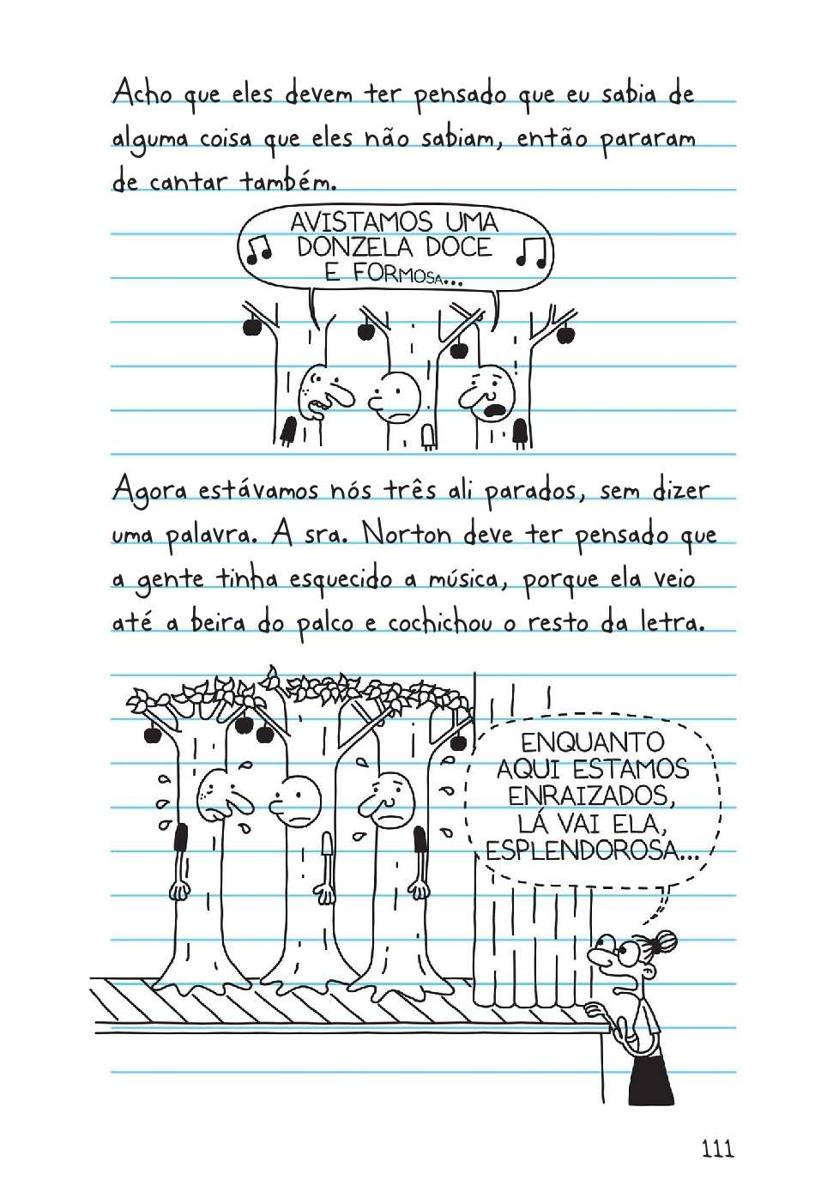 Acho que eles devem ter pensado que eu sabia de
alguma coisa que eles não sabiam, então pararam
de cantar também.
AVISTAMOS UMA
DONZELA DOCE
E FORMOSA...
Agora estávamos nós três ali parados, sem dizer
uma palavra. A sra. Norton deve ter pensado que
a gente tinha esquecido a música, porque ela veio
até a beira do palco e cochichou o resto da letra.
ENQUANTO
AQUI ESTAMOS
ENRAIZADOS,
LÁ VAI ELA,
ESPLENDOROSA...
111